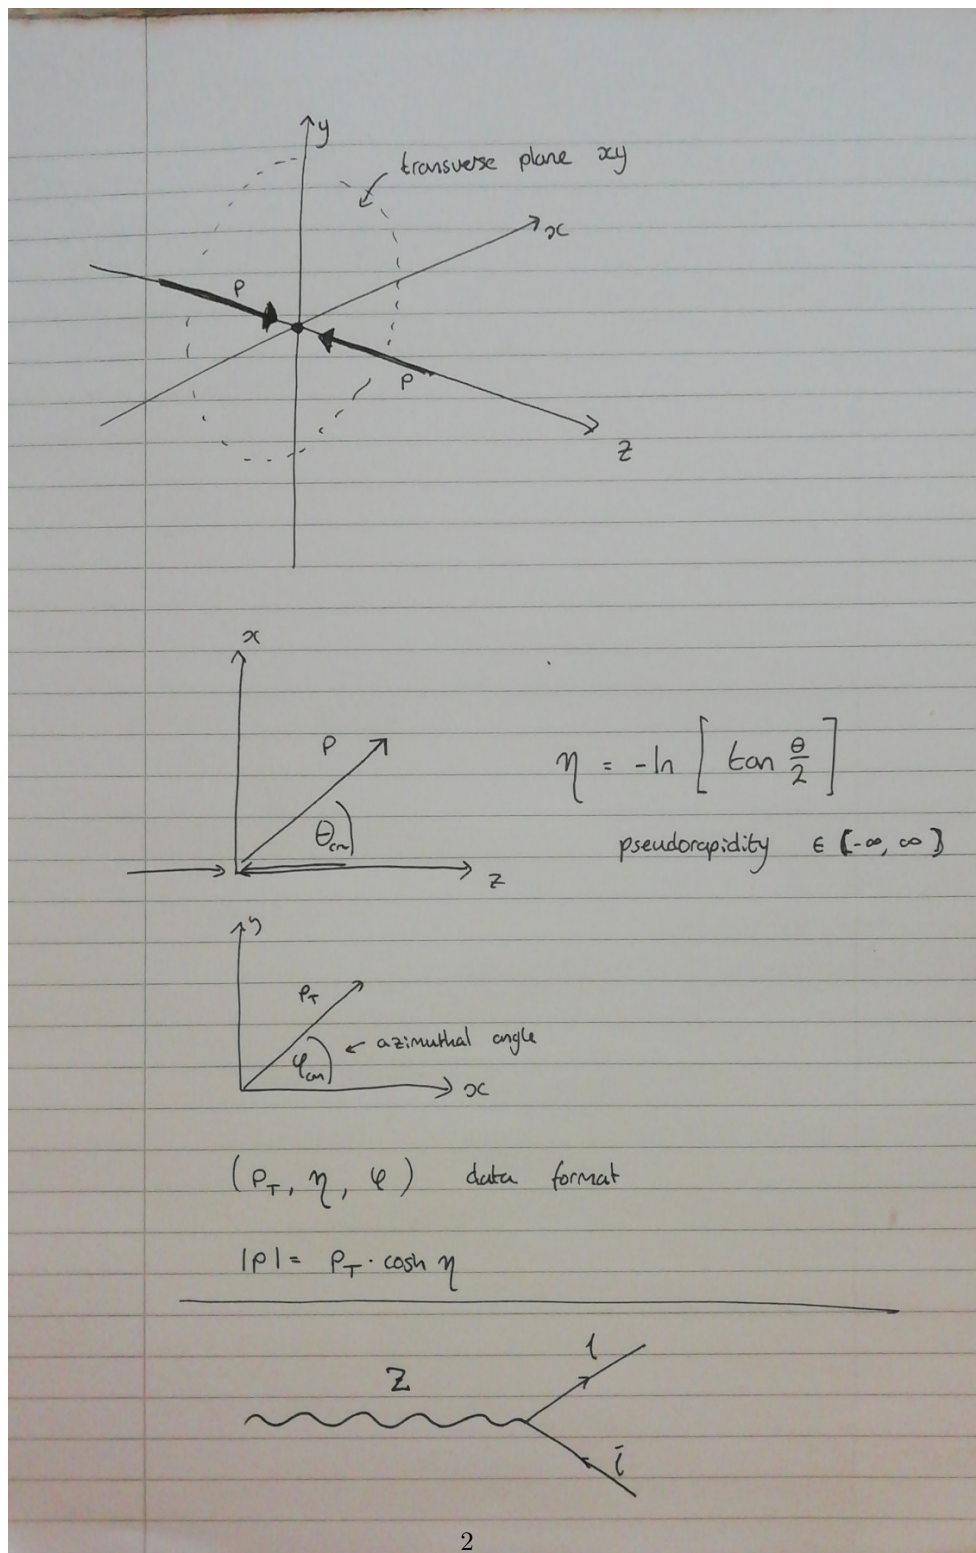 y
transverse plane xy
x
p
p
z
x
p
η = -ln [ tan θ/2 ]
θcm
pseudorapidity ∈ (-∞, ∞)
z
y
pT
← azimuthal angle
φcm
x
(pT, η, φ) data format
|p| = pT · cosh η
l
Z
l̄
2